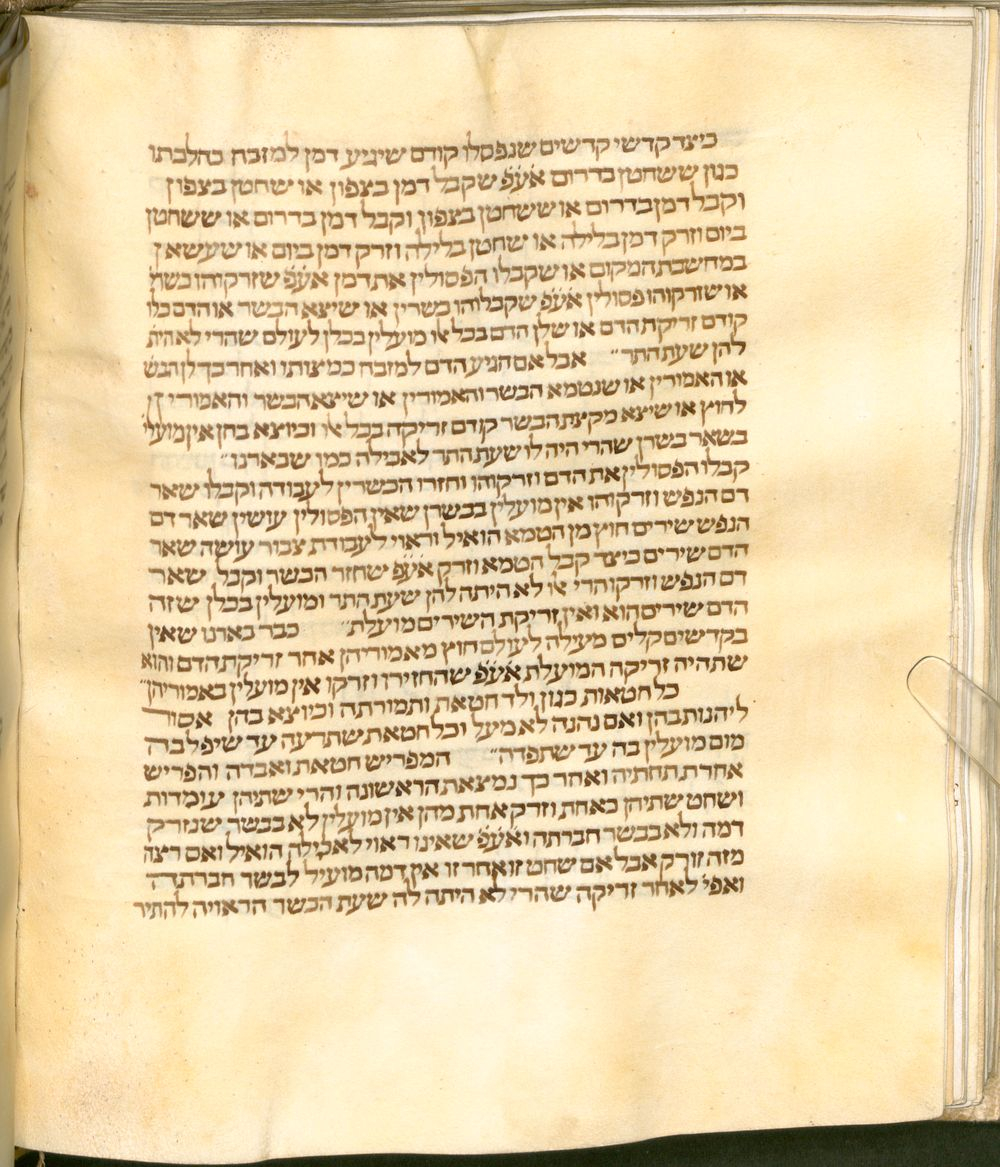 כיצד קדשי קדשים שנפסלו קודם שיגיע דמן למזבח כהלכתו
כגון ששחטן בדרום אע׳פ שקבל דמן בצפון או שחטן בצפון
וקבל דמן בדרום או ששחטן בצפון וקבל דמן בדרום או ששחטן
ביום וזרק דמן בלילה או שחטן בלילה וזרק דמן ביום או שעשאן
במחשבת המקום או שקבלו הפסולין את דמן אע׳פ שזרקוהו כשרין
או שזרקוהו פסולין אע׳פ שקבלוהו כשרין או שיצא הבשר או הדם כלו
קודם זריקת הדם או שלן הדם בכל אלו מועלין בכלן לעולם שהרי לא היתה
להן שעת התר״ אבל אם הגיע הדם למזבח כמצותו ואחר כך לן הבשר
או האמורין או שנטמא הבשר והאמורין או שיצא הבשר והאמורין
לחוץ או שיצא מקצת הבשר קודם זריקה בכל אלו וכיוצא בהן אין מועלין
בשאר בשרן שהרי היה לו שעת התר לאכילה כמו שבארנו״
קבלו הפסולין את הדם וזרקוהו וחזרו הכשרין לעבודה וקבלו שאר
דם הנפש וזרקוהו אין מועלין בבשרן שאין הפסולין עושין שאר דם
הנפש שירים חוץ מן הטמא הואיל וראוי לעבודת צבור עושה שאר
הדם שירים כיצד קבל הטמא וזרק אע׳פ שחזר הכשר וקבל שאר
דם הנפש וזרקו הרי אלו לא היתה להן שעת התר ומועלין בכלן שזה
הדם שירים הוא ואין זריקת השירים מועלת״ כבר בארנו שאין
בקדשים קלים מעילה לעולם חוץ מאמוריהן אחר זריקת הדם והוא
שתהיה זריקה המועלת אע׳פ שהחזירן וזרקו אין מועלין באמוריהן״
כל חטאות כגון ולד חטאת ותמורתה וכיוצא בהן אסור
ליהנות בהן ואם נהנה לא מעל וכל חטאת שתרעה עד שיפל בה
מום מועלין בה עד שתפדה״ המפריש חטאת ואבדה והפריש
אחרת תחתיה ואחר כך נמצאת הראשונה והרי שתיהן עומדות
ושחט שתיהן כאחת וזרק אחת מהן אין מועלין לא בבשר שנזרק
דמה ולא בבשר חברתה ואע׳פ שאינו ראוי לאכילה הואיל ואם רצה
מזה זורק אבל אם שחט זו אחר זו אין דמה מועיל לבשר חברתה
ואפי׳ לאחר זריקה שהרי לא היתה לה שעת הכשר הראויה להתיר